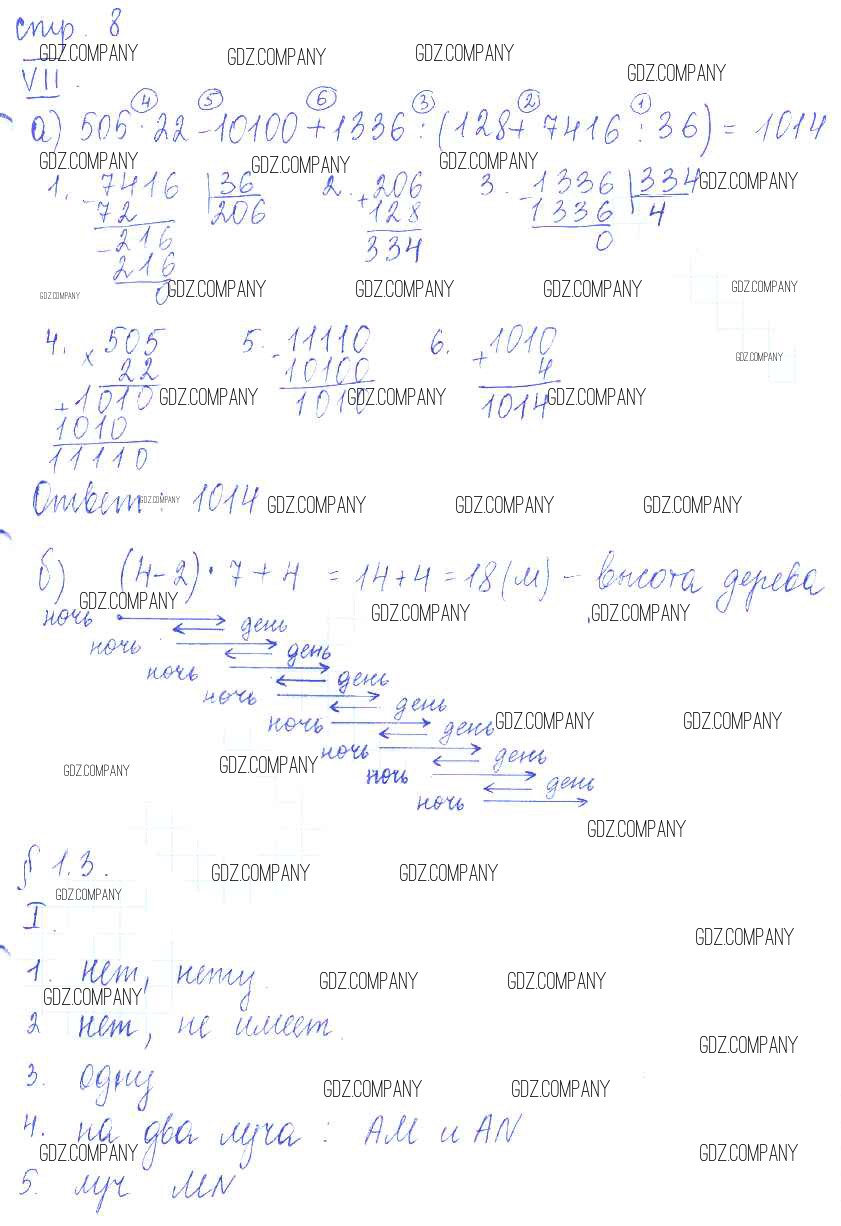 стр. 8
GDZ.COMPANY GDZ.COMPANY GDZ.COMPANY GDZ.COMPANY
VII.
④ ⑤ ⑥ ③ ② ①
а) 505 · 22 - 10100 + 1336 : (128 + 7416 : 36) = 1014
GDZ.COMPANY GDZ.COMPANY GDZ.COMPANY GDZ.COMPANY
1. - 7416 | 36 2. + 206 3. - 1336 | 334
72 206 128 1336 4
- 216 334 0
216
0
GDZ.COMPANY GDZ.COMPANY GDZ.COMPANY GDZ.COMPANY GDZ.COMPANY
4. × 505 5. - 11110 6. + 1010 GDZ.COMPANY
22 10100 4
+ 1010 GDZ.COMPANY 1010 GDZ.COMPANY 1014 GDZ.COMPANY
1010
11110
Ответ: 1014 GDZ.COMPANY GDZ.COMPANY GDZ.COMPANY GDZ.COMPANY
б) (4-2) · 7 + 4 = 14 + 4 = 18 (м) - высота дерева
GDZ.COMPANY GDZ.COMPANY GDZ.COMPANY
ночь день
ночь день
ночь день
ночь день
ночь день GDZ.COMPANY GDZ.COMPANY
ночь день
GDZ.COMPANY GDZ.COMPANY
ночь день
ночь
GDZ.COMPANY
§ 1.3.
GDZ.COMPANY GDZ.COMPANY
GDZ.COMPANY
I.
GDZ.COMPANY
1. нет, нету.
GDZ.COMPANY GDZ.COMPANY GDZ.COMPANY
2 нет, не имеет.
GDZ.COMPANY
3. одну
GDZ.COMPANY GDZ.COMPANY
4. на два луча: AM и AN
GDZ.COMPANY GDZ.COMPANY
5. луч MN